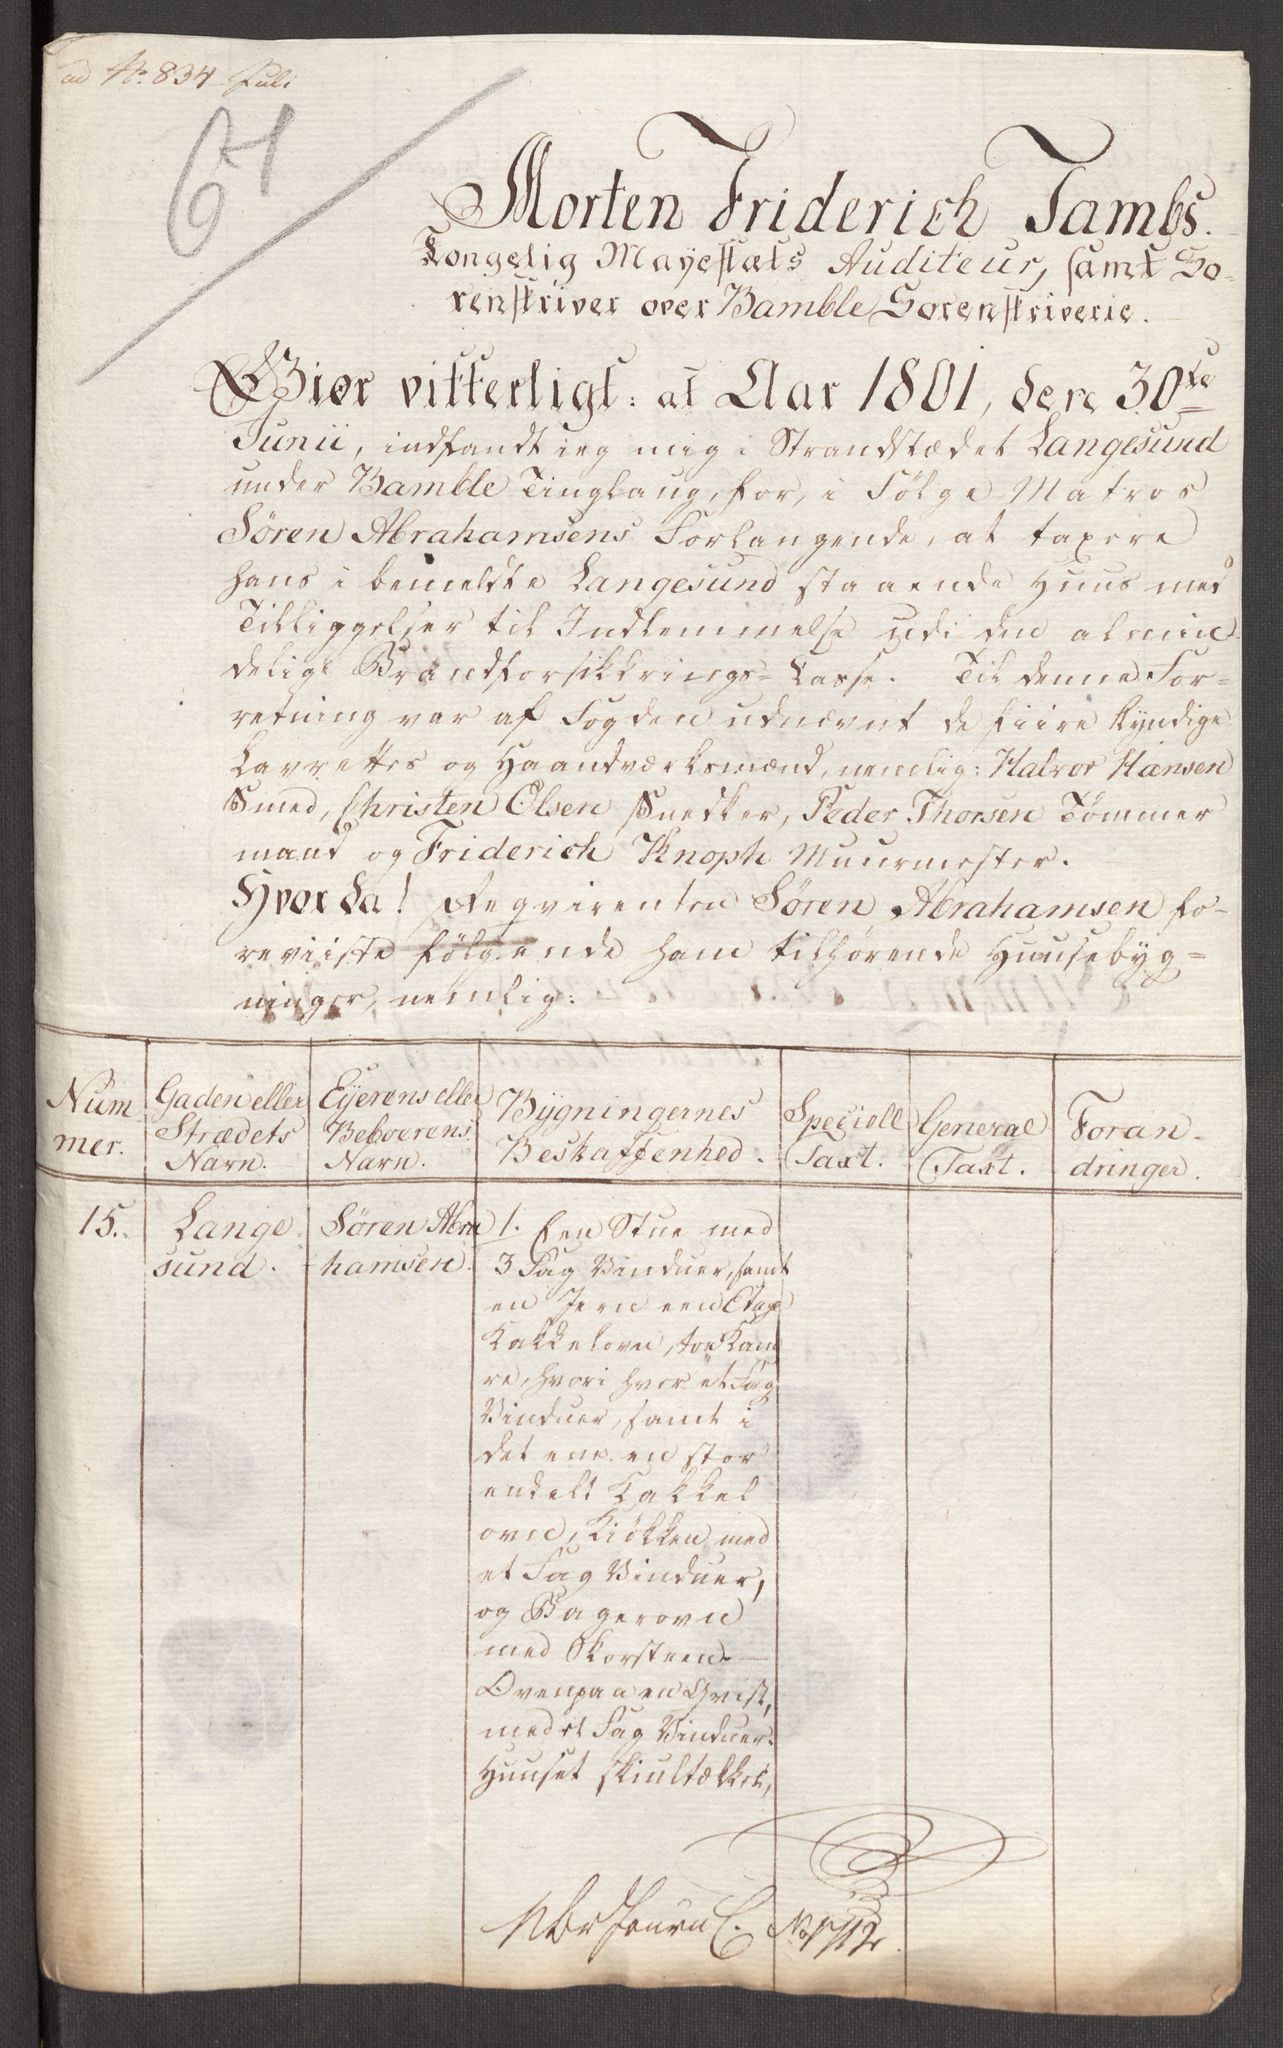 ad No. 834 Juli
61
Morten Friderich Tambs.
Kongelig Mayestæts Auditeur, samt So-
renskriver over Bamble Sorenskriverie.
Giør vitterligt: at Aar 1801, den 30te
Junii, indfandt ieg mig i Strandstædet Langesund
under Bamble Tinglaug, for, i Følge Matros
Søren Abrahamsens Forlangende, at taxere
hans i bemeldte Langesund staaende Huus med
Tilliggelser til Indlemmelse udi den almin-
delige Brandforsikkrings-Casse. Til denne For-
retning var af Fogden udnævnt de fiire kyndige
Lavrettes og Haandværksmænd, nemlig: Halvor Hansen
Smed, Christen Olsen Snedker, Peder Thorsen Tømmer
mand og Friderich Knoph Muurmester.
Hvor da! Reqvirenten Søren Abrahamsen fo-
reviiste følgende ham tilhørende Huusebyg-
ninger, nemlig:
Num
mer.
Gaden eller
Strædets
Navn.
Eyerens eller
Beboerens
Navn.
Bygningernes
Beskaffenhed.
Speciell
Taxt.
General
Taxt.
Foran-
dringer.
15.
Lange
sund.
Søren Abra
hamsen.
1. Een Stue med
3 Fag Vinduer, samt
en Jern een Etage
Kakkelovn, toe Kam
re, hvori hver et Fag
Vinduer, samt i
det ene en stor
endelt Kakkel
ovn, Kiøkken med
et Fag Vinduer,
og Bagerovn
med Skorsteen-
Ovenpaa en Qvist,
med et Fag Vinduer.
Huuset skiultækket,
Journ C. No